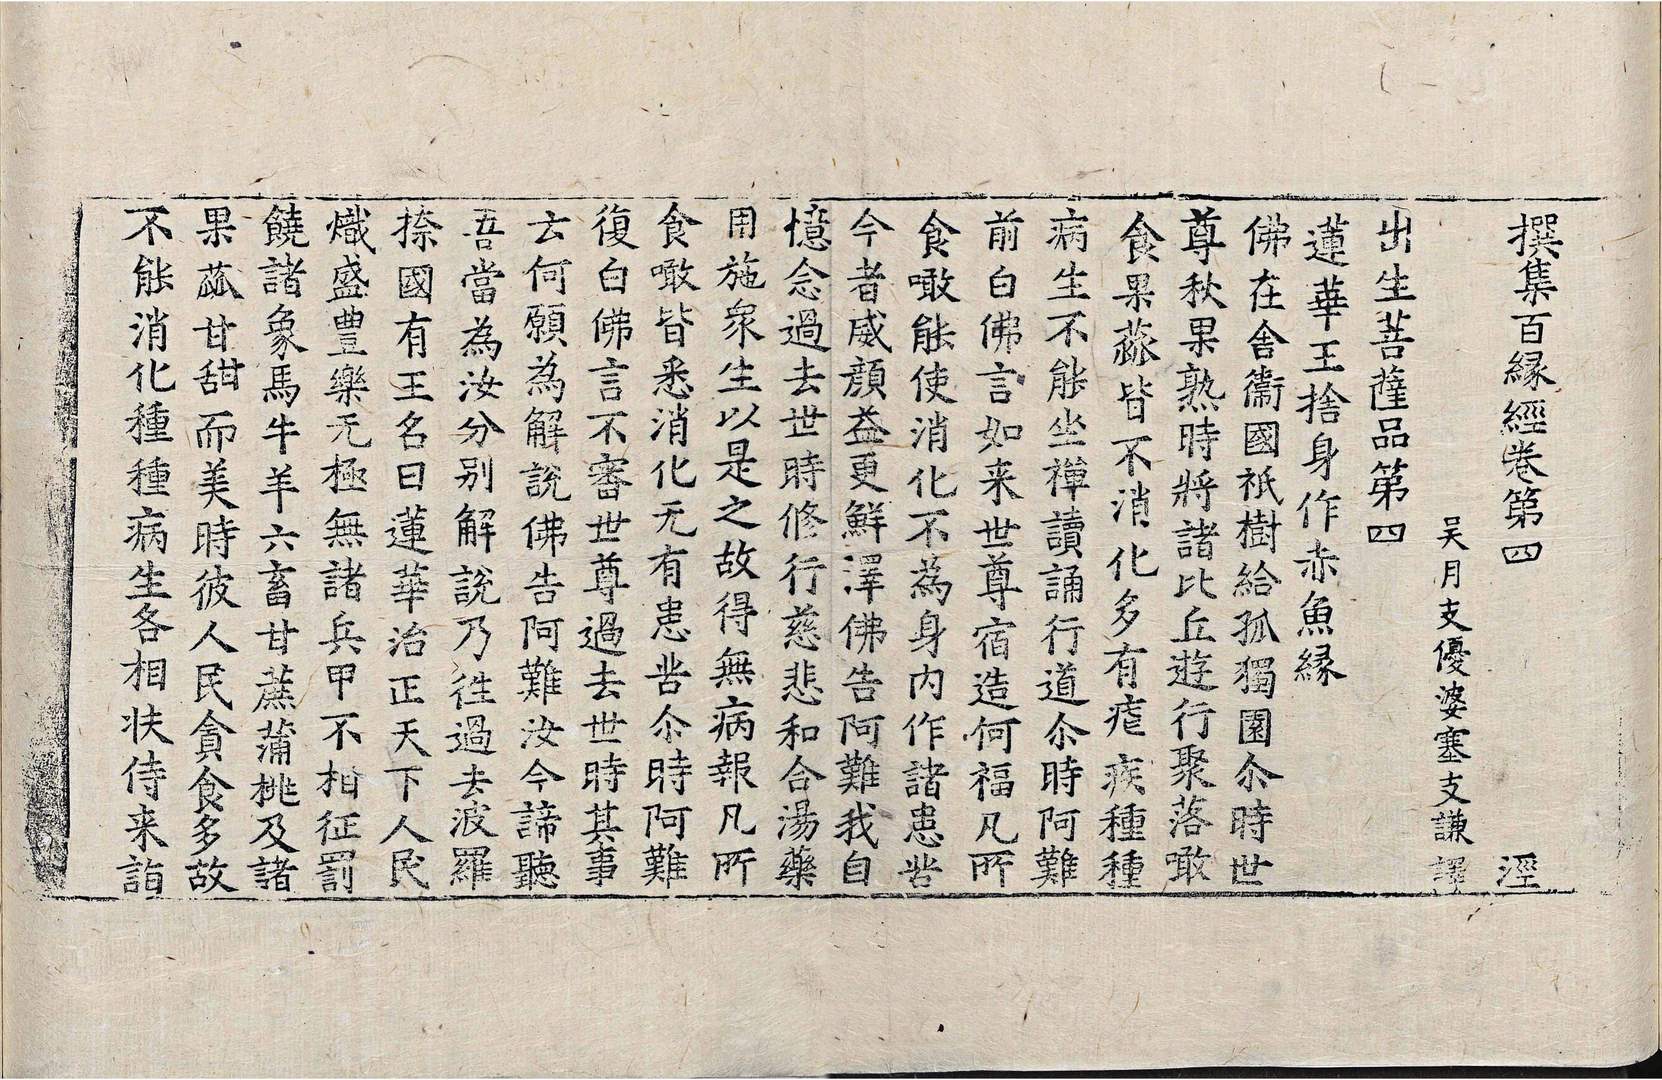 撰集百縁經卷第四 涇
吴月支優婆塞支謙譯
出生菩薩品第四
蓮華王捨身作赤魚縁
佛在舍衞國祇樹給孤獨園尒時世
尊秋果熟時將諸比丘遊行聚落噉
食果蓏皆不消化多有疟疾種種
病生不能坐禪讀誦行道尒時阿難
前白佛言如来世尊宿造何福凡所
食噉能使消化不為身内作諸患苦
今者威顔益更鮮澤佛告阿難我自
憶念過去世時修行慈悲和合湯藥
用施衆生以是之故得無病報凡所
食噉皆悉消化无有患苦尒時阿難
復白佛言不審世尊過去世時其事
云何願為解說佛告阿難汝今諦聽
吾當為汝分别解說乃徃過去波羅
捺國有王名曰蓮華治正天下人民
熾盛豊樂无極無諸兵甲不相征罰
饒諸象馬牛羊六畜甘蔗蒲桃及諸
果蓏甘甜而美時彼人民貪食多故
不能消化種種病生各相扶侍来詣